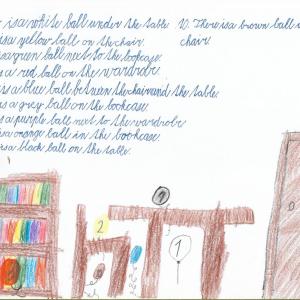 is a white ball under the table
is a yellow ball on the chair.
is a green ball next to the bookcase.
is a red ball on the wardrobe.
is a blue ball between the chair and the table.
is a grey ball on the bookcase.
is a purple ball next to the wardrobe
is a orange ball in the bookcase.
is a black ball on the table.
10. There is a brown ball
chair.
2
1